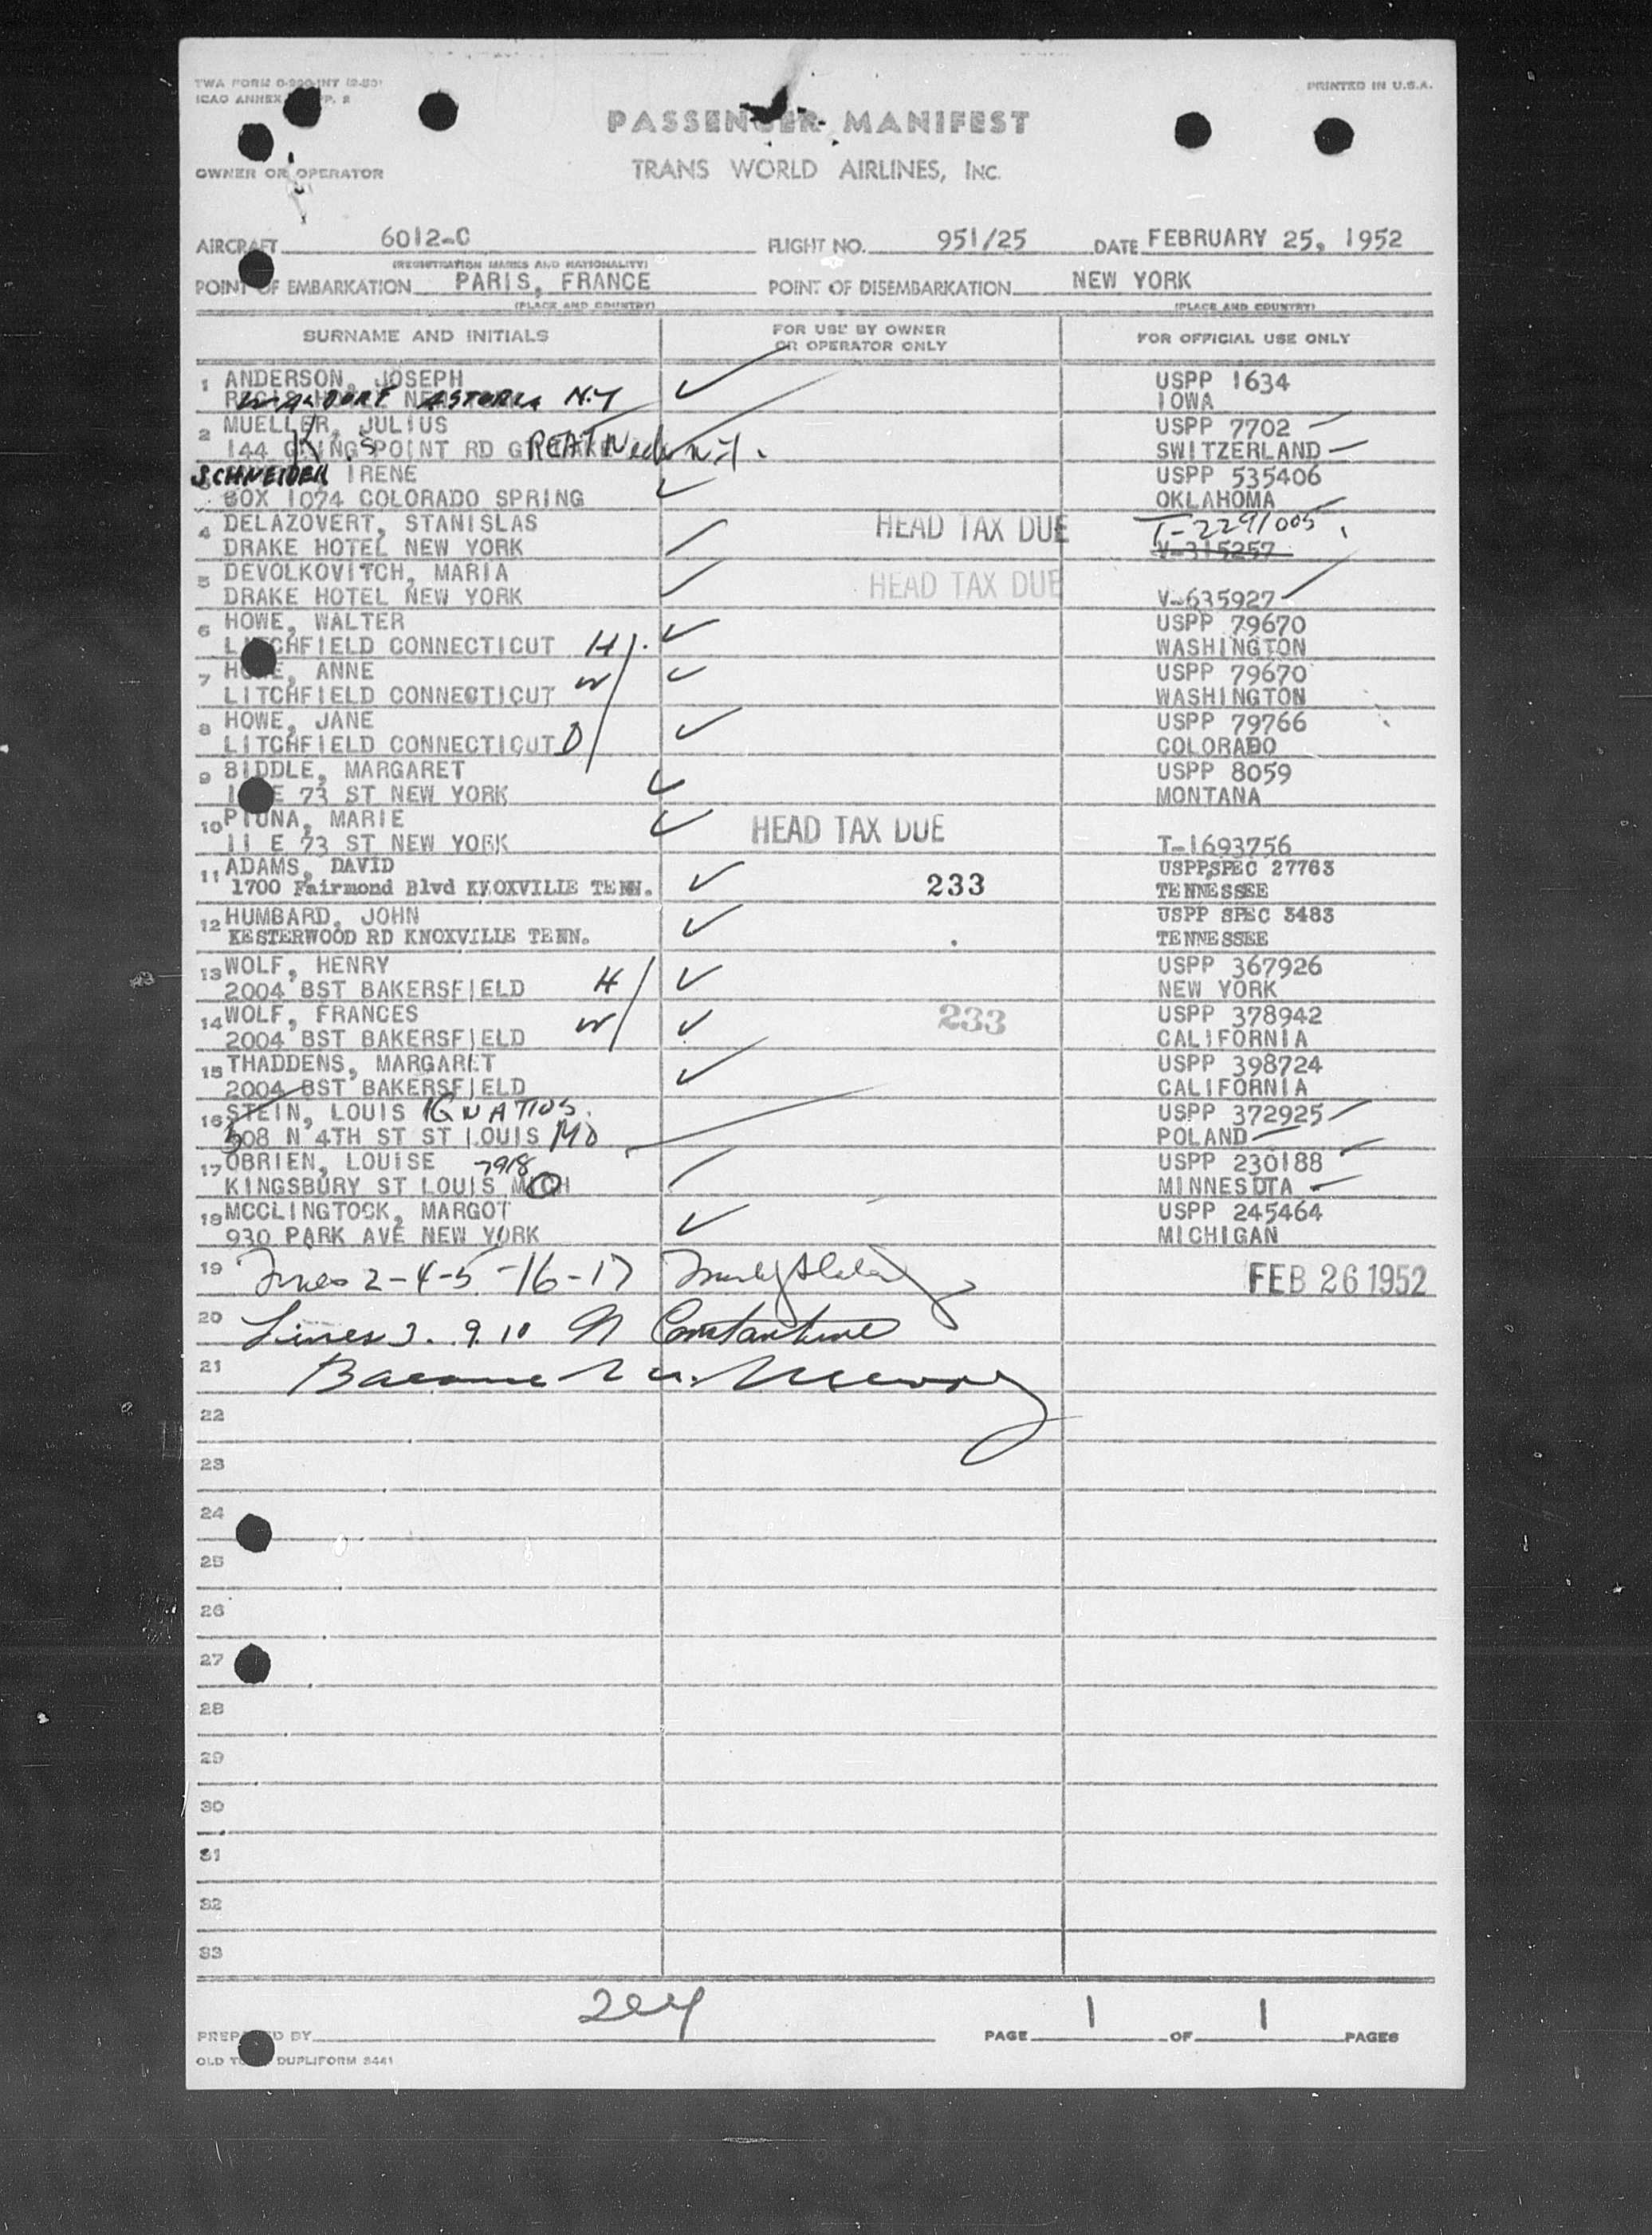 TWA FORM
ICAO ANNEX
PRINTED IN U.S.A.
PASSENGER MANIFEST
TRANS WORLD AIRLINES, INC.
OWNER OR OPERATOR
AIRCRAFT 6012-C FLIGHT NO. 951/25 DATE FEBRUARY 25, 1952
(REGISTRATION MARKS AND NATIONALITY)
POINT OF EMBARKATION PARIS, FRANCE POINT OF DISEMBARKATION NEW YORK
(PLACE AND COUNTRY) (PLACE AND COUNTRY)
SURNAME AND INITIALS FOR USE BY OWNER OR OPERATOR ONLY FOR OFFICIAL USE ONLY
1 ANDERSON, JOSEPH USPP 1634
WALDORF ASTORIA N.Y IOWA
2 MUELLER, JULIUS USPP 7702
144 KINGS POINT RD GREAT Neck N.Y. SWITZERLAND
3 SCHNEIDER IRENE USPP 535406
BOX 1074 COLORADO SPRING OKLAHOMA
4 DELAZOVERT, STANISLAS HEAD TAX DUE T-2291005
DRAKE HOTEL NEW YORK V-315257
5 DEVOLKOVITCH, MARIA HEAD TAX DUE
DRAKE HOTEL NEW YORK V-635927
6 HOWE, WALTER USPP 79670
LITCHFIELD CONNECTICUT H WASHINGTON
7 HOWE, ANNE USPP 79670
LITCHFIELD CONNECTICUT W WASHINGTON
8 HOWE, JANE USPP 79766
LITCHFIELD CONNECTICUT D COLORADO
9 BIDDLE, MARGARET USPP 8059
E 73 ST NEW YORK MONTANA
10 PIUNA, MARIE HEAD TAX DUE
11 E 73 ST NEW YORK T-1693756
11 ADAMS, DAVID USPP,SPEC 27763
1700 Fairmond Blvd KNOXVILLE TENN. 233 TENNESSEE
12 HUMBARD, JOHN USPP SPEC 3483
KESTERWOOD RD KNOXVILLE TENN. TENNESSEE
13 WOLF, HENRY USPP 367926
2004 BST BAKERSFIELD H NEW YORK
14 WOLF, FRANCES 233 USPP 378942
2004 BST BAKERSFIELD W CALIFORNIA
15 THADDENS, MARGARET USPP 398724
2004 BST BAKERSFIELD CALIFORNIA
16 STEIN, LOUIS IGNATIUS. USPP 372925
508 N 4TH ST ST LOUIS MO POLAND
17 OBRIEN, LOUISE 7918 USPP 230188
KINGSBURY ST LOUIS MO MINNESOTA
18 MCCLINGTOCK, MARGOT USPP 245464
930 PARK AVE NEW YORK MICHIGAN
19 Lines 2-4-5-16-17 FEB 26 1952
20 Lines 3. 9. 10 Constantine
21
22
23
24
25
26
27
28
29
30
31
32
33
204
PREPARED BY PAGE 1 OF 1 PAGES
OLD TOWN DUPLIFORM 8441